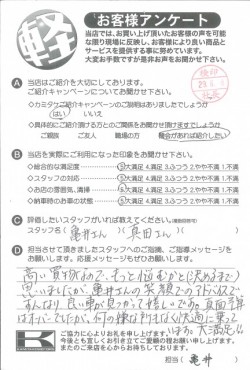 軽
お客様アンケート
当店では、お買い上げ頂いたお客様の声を可能
な限り現場に反映し、お客様により良い商品と
サービスを提供する事に努めています。
大変お手数ですが是非お声をお聞かせ下さい。
A 当店はご紹介を大切にしております。
ご紹介キャンペーンについてお聞かせ下さい。
◇カミタコご紹介キャンペーンのご説明はありましたでしょうか
はい いいえ
◇具体的にご紹介頂ける方との関係をお聞かせ頂けますでしょうか
ご親族 ご友人 職場の方 機会があれば紹介したい
B 当店を実際にご利用になった印象をお聞かせ下さい。
◇総合的な満足度 5大満足 4.満足 3.ふつう 2.やや不満 1.不満
◇スタッフの対応 5大満足 4.満足 3.ふつう 2.やや不満 1.不満
◇お店の雰囲気、清掃 5大満足 4.満足 3.ふつう 2.やや不満 1.不満
◇納車時のお車の状態 5大満足 4.満足 3.ふつう 2.やや不満 1.不満
C 評価したいスタッフがいれば教えてください。
スタッフ名(亀井さん)(真田さん)
D 担当させて頂きましたスタッフへのご指摘、ご指導メッセージを
お願いします。応援メッセージもぜひお願いします。
高い買物なので、もっと悩むかと(決めるまで)
思いましたが、亀井さんの笑顔とこのアドバイスで
すんなり、良い車が見つかって嬉しいです。真面予算
はオーバーでしたが、何の嫌な所もなく快適に乗って
います。大満足!!
K
ご協力に心よりお礼を申し上げます。
今後とも宜しくお引き立てご愛顧の程お願い申し上げます。
またのご来店を心からお待ちしております。
担当(亀井)